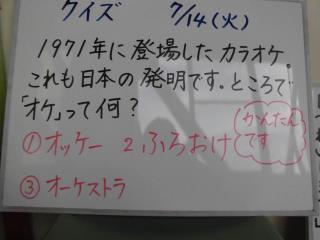 クイズ 7/14(火)
1971年に登場したカラオケ。
これも日本の発明です。ところで
「オケ」って何?
①オッケー 2ふろおけ
かんたん
です
③オーケストラ